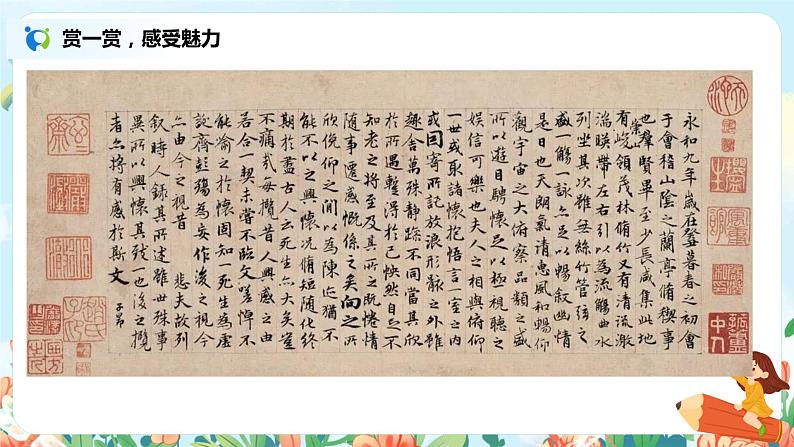 赏一赏，感受魅力
永和九年歲在癸丑暮春之初會
于會稽山陰之蘭亭脩稧事
也群賢畢至少長咸集此地
有崇山峻領茂林脩竹又有清流激
湍暎帶左右引以為流觴曲水
列坐其次雖無絲竹管弦之
盛一觴一詠亦足以暢敘幽情
是日也天朗氣清惠風和暢仰
觀宇宙之大俯察品類之盛
所以遊目騁懷足以極視聽之
娛信可樂也夫人之相與俯仰
一世或取諸懷抱悟言一室之內
或因寄所託放浪形骸之外雖
趣舍萬殊靜躁不同當其欣
於所遇蹔得於己怏然自足不
知老之將至及其所之既惓情
隨事遷感慨係之矣向之所
欣俛仰之間以為陳迹猶不
能不以之興懷況脩短隨化終
期於盡古人云死生亦大矣豈
不痛哉每攬昔人興感之由
若合一契未嘗不臨文嗟悼不
能喻之於懷固知一死生為虛
誕齊彭殤為妄作後之視今
亦由今之視昔 悲夫故列
敘時人錄其所述雖世殊事
異所以興懷其致一也後之攬
者亦將有感於斯文 子昂